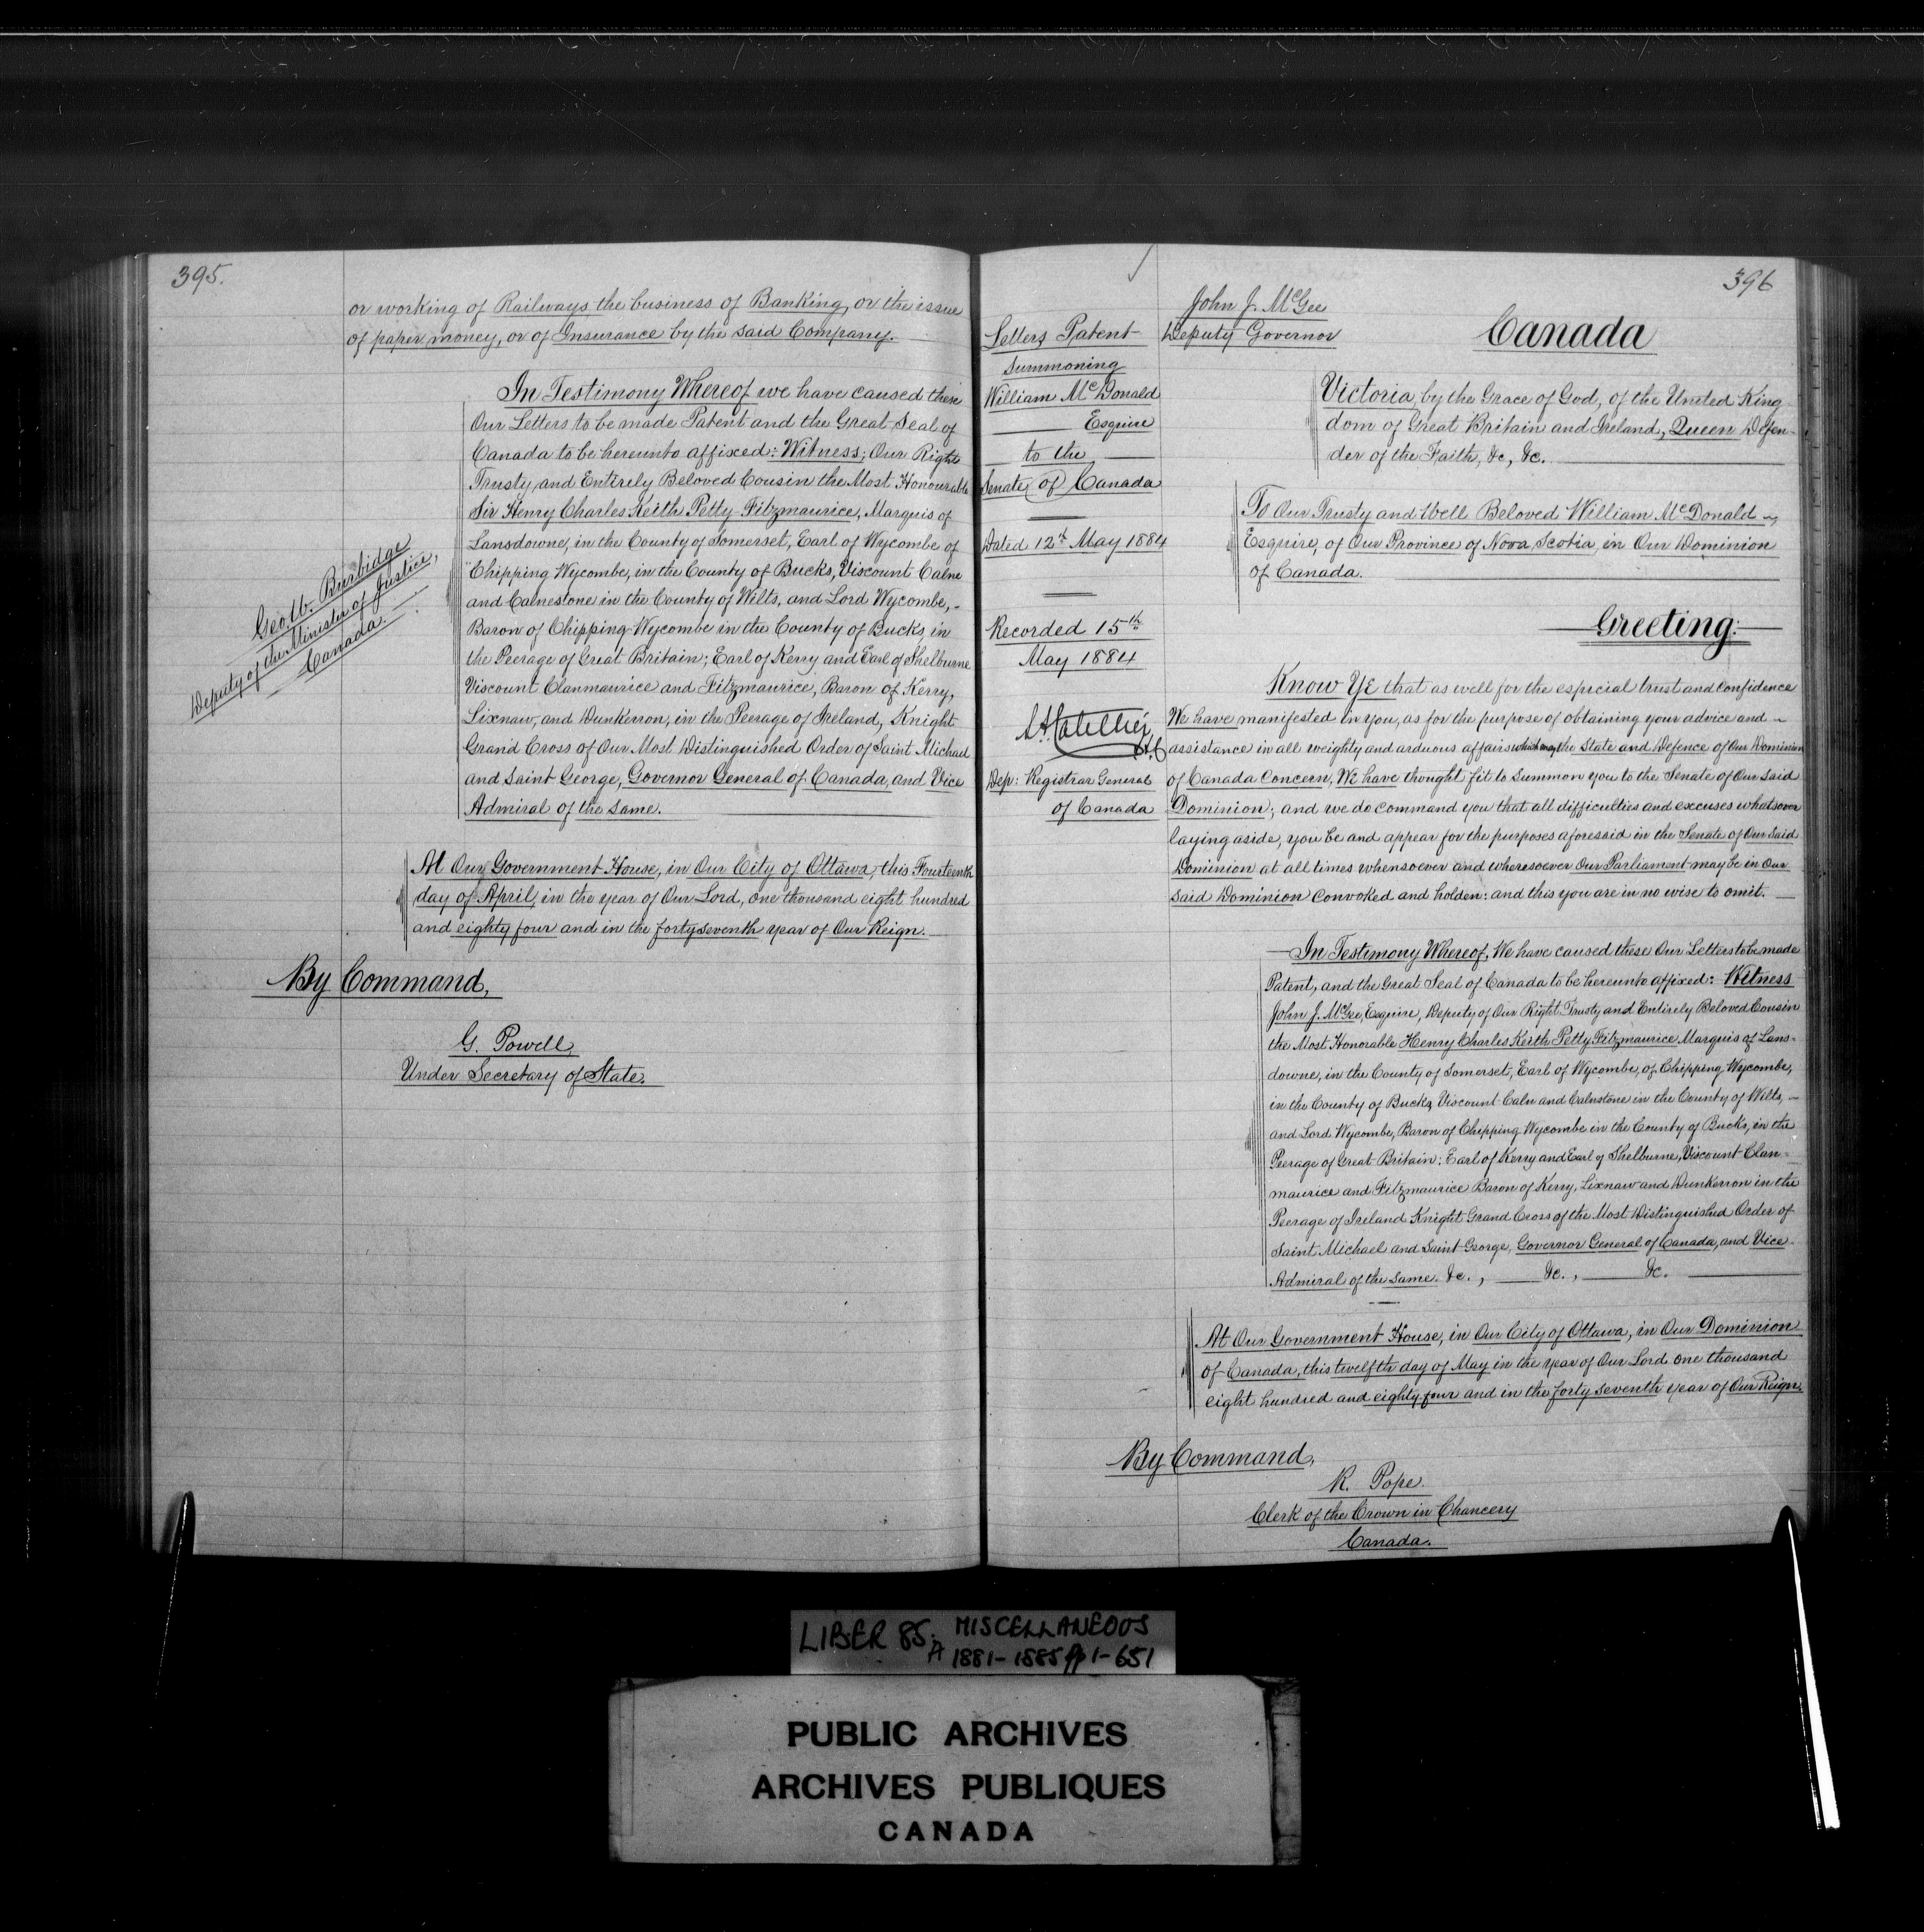 395.
or working of Railways, the business of Banking, or the issue
of paper money, or of Insurance by the said Company.
In Testimony Whereof we have caused these
Our Letters to be made Patent and the Great Seal of
Canada to be hereunto affixed: Witness; Our Right
Trusty and Entirely Beloved Cousin the Most Honourable
Sir Henry Charles Keith Petty-Fitzmaurice, Marquis of
Lansdowne, in the County of Somerset, Earl of Wycombe of
Chipping Wycombe, in the County of Bucks, Viscount Calne
and Calnestone in the County of Wilts, and Lord Wycombe,
Baron of Chipping-Wycombe in the County of Bucks, in
the Peerage of Great Britain; Earl of Kerry and Earl of Shelburne
Viscount Clanmaurice and Fitzmaurice, Baron of Kerry,
Lixnaw, and Dunkerron, in the Peerage of Ireland, Knight
Grand Cross of Our Most Distinguished Order of Saint Michael
and Saint George, Governor General of Canada, and Vice
Admiral of the same.
Geo. W. Burbidge
Deputy of the Minister of Justice,
Canada.
At Our Government House, in Our City of Ottawa, this Fourteenth
day of April, in the year of Our Lord, one thousand eight hundred
and eighty four and in the forty seventh year of Our Reign.
By Command,
G. Powell,
Under Secretary of State.
396
Letters Patent
Summoning
William McDonald
Esquire
to the
Senate of Canada
Dated 12th May 1884
Recorded 15th
May 1884
Dep: Registrar General
of Canada
John J. McGee
Deputy Governor
Canada
Victoria, by the Grace of God, of the United King-
dom of Great Britain and Ireland, Queen Defen-
der of the Faith, &c, &c.
To Our Trusty and Well Beloved William McDonald
Esquire, of Our Province of Nova Scotia, in Our Dominion
of Canada.
Greeting:
Know Ye that as well for the especial trust and confidence
We have manifested in you, as for the purpose of obtaining your advice and
assistance in all weighty and arduous affairs which may the State and Defence of Our Dominion
of Canada Concern, We have thought fit to Summon you to the Senate of Our said
Dominion; and we do command you that all difficulties and excuses whatsover
laying aside, you be and appear for the purposes aforesaid in the Senate of Our said
Dominion at all times whensoever and wheresoever Our Parliament may be in Our
said Dominion Convoked and holden: and this you are in no wise to omit.
In Testimony Whereof, We have caused these Our Letters to be made
Patent, and the Great Seal of Canada to be hereunto affixed: Witness
John J. McGee, Esquire, Deputy of Our Right Trusty and Entirely Beloved Cousin
the Most Honorable Henry Charles Keith Petty Fitzmaurice Marquis of Lans-
downe, in the County of Somerset, Earl of Wycombe, of Chipping Wycombe,
in the County of Bucks, Viscount Caln and Calnstone in the County of Wilts,
and Lord Wycombe, Baron of Chipping Wycombe in the County of Bucks, in the
Peerage of Great Britain: Earl of Kerry and Earl of Shelburne, Viscount Clan-
maurice and Fitzmaurice Baron of Kerry, Lixnaw and Dunkerron in the
Peerage of Ireland Knight Grand Cross of the Most Distinguished Order of
Saint Michael and Saint George, Governor General of Canada, and Vice
Admiral of the same. &c., &c., &c.
At Our Government House, in Our City of Ottawa, in Our Dominion
of Canada, this twelfth day of May in the year of Our Lord one thousand
eight hundred and eighty-four and in the forty seventh year of Our Reign.
By Command,
R. Pope.
Clerk of the Crown in Chancery
Canada.
LIBER 85. MISCELLANEOUS
A 1881-1885 pp 1-651
PUBLIC ARCHIVES
ARCHIVES PUBLIQUES
CANADA